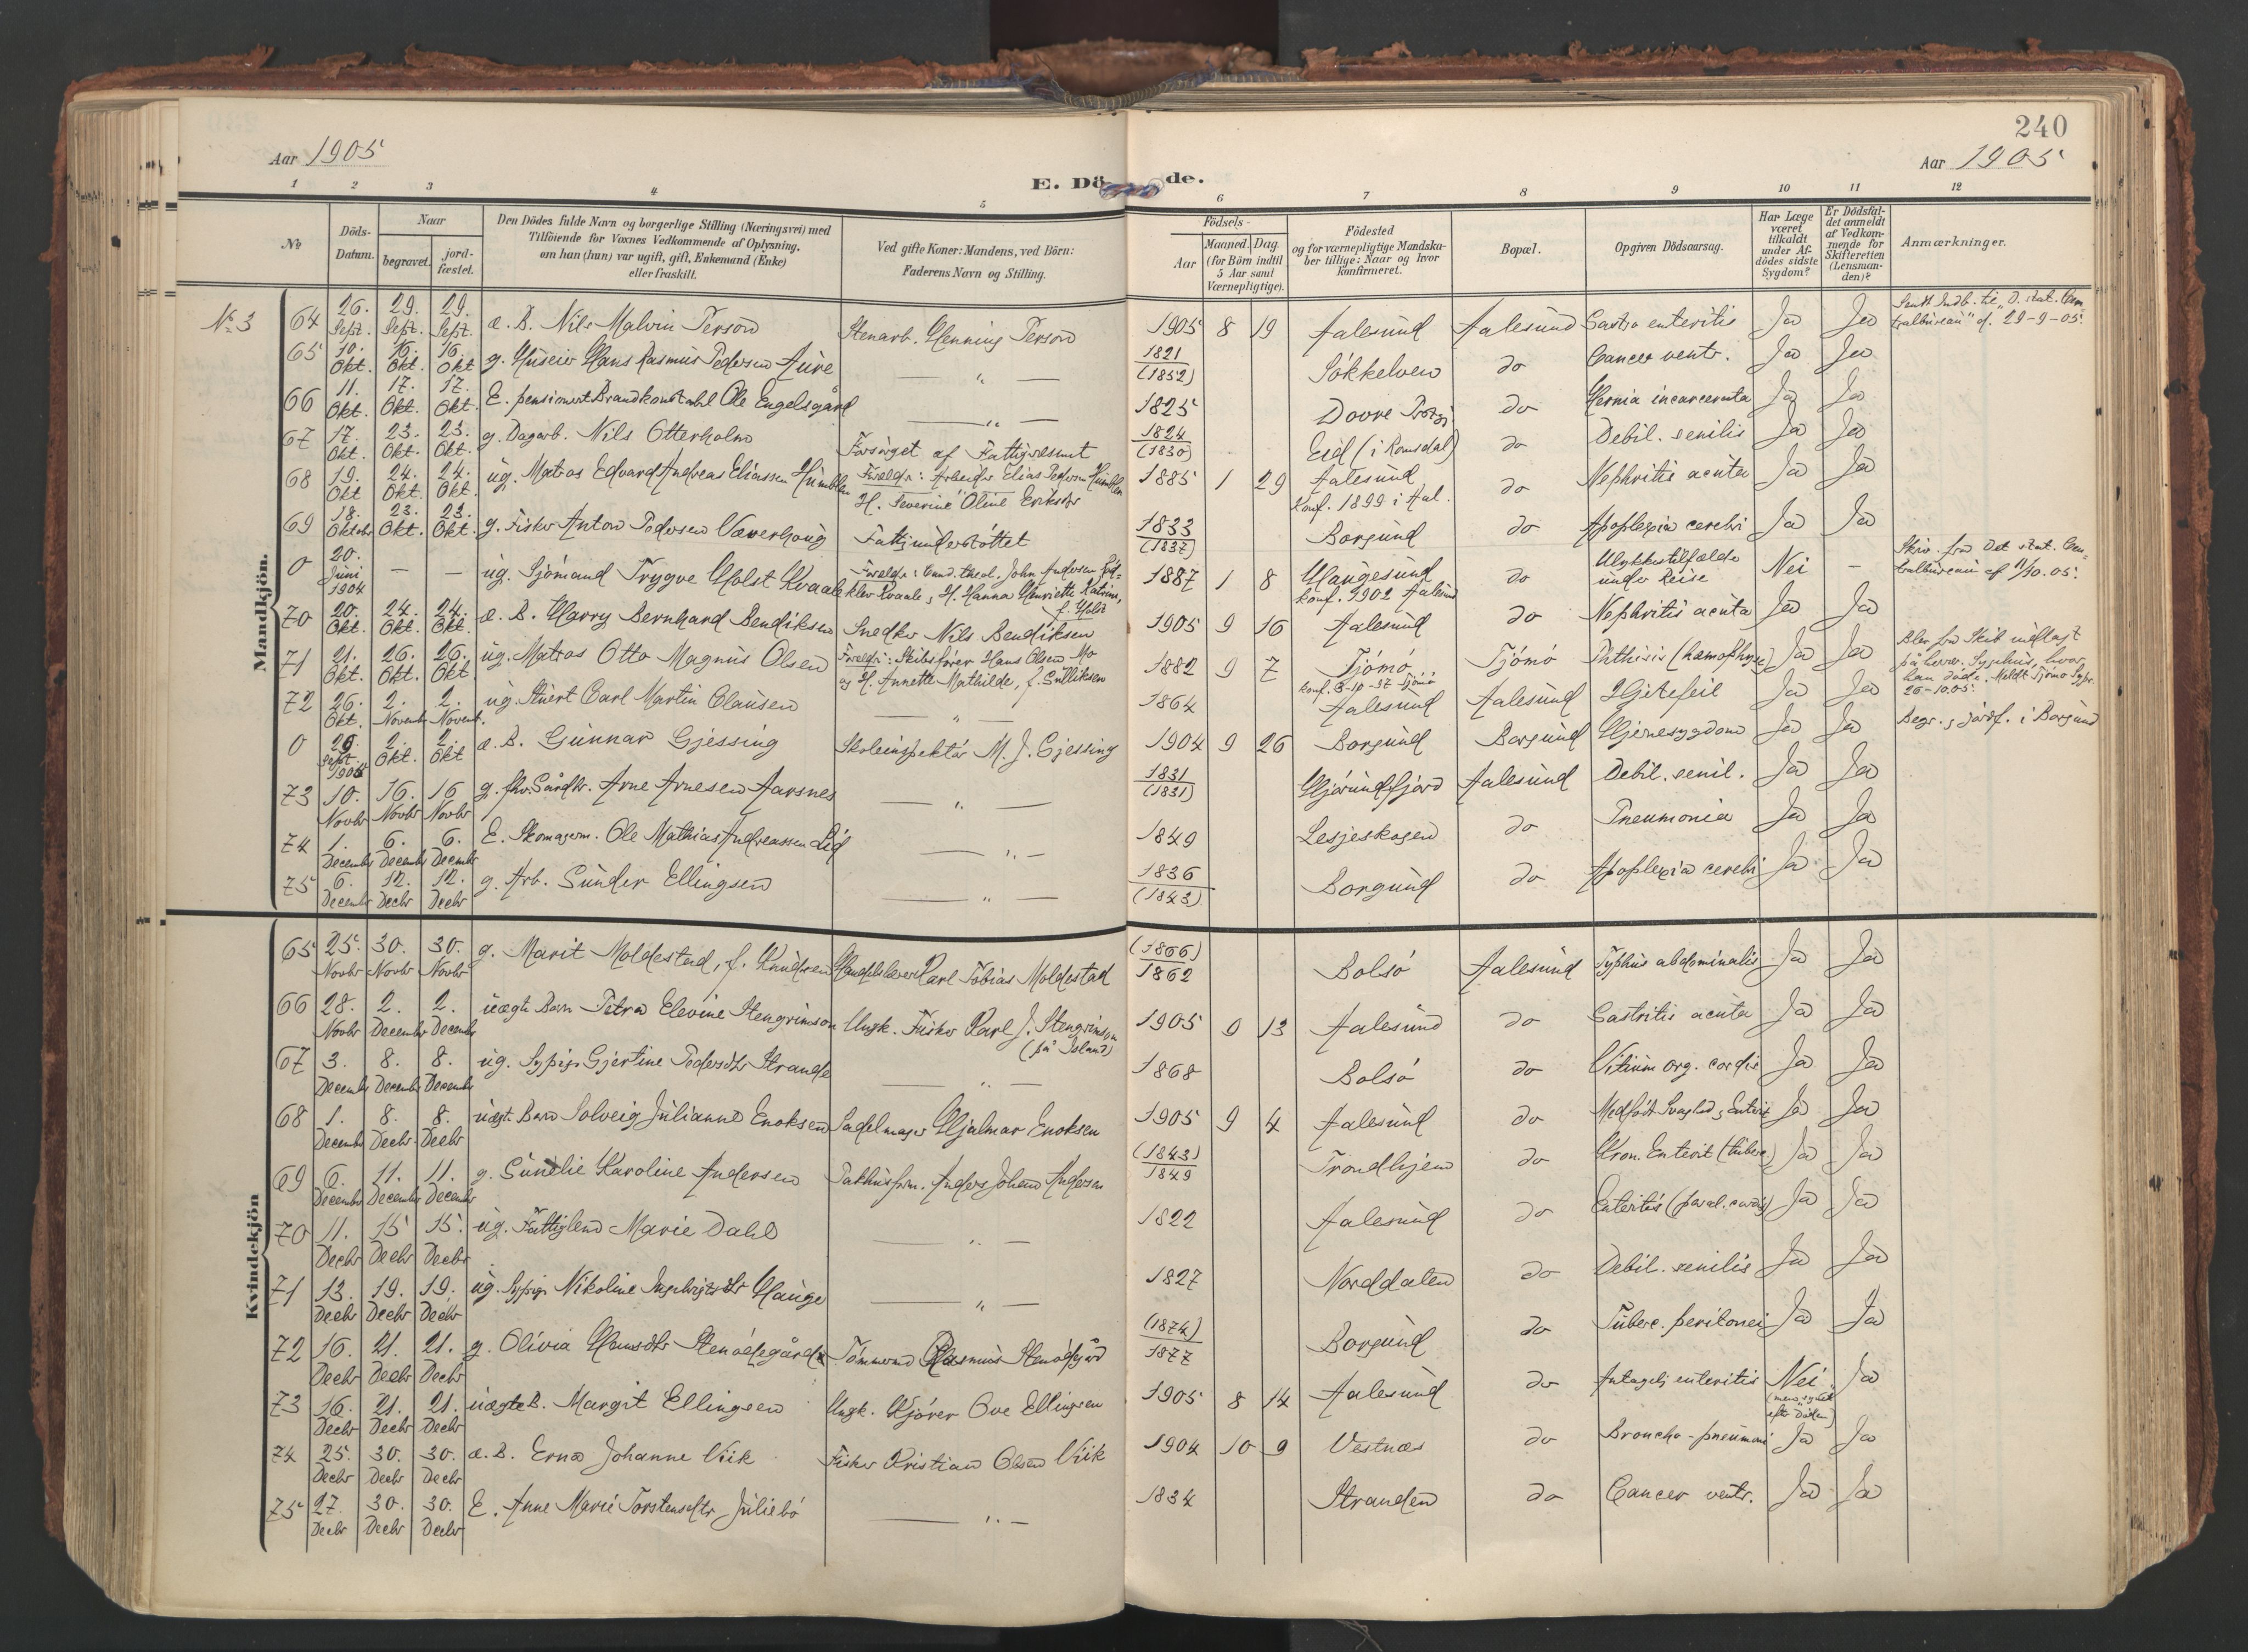 240
Aar 1905
Aar 1905
E. Dö de.
1 2 3 4 5 6 7 8 9 10 11 12
No
Döds-Datum.
Naar
begravet.
jord-fæstet.
Den Dödes fulde Navn og borgerlige Stilling (Næringsvei) med
Tilföiende for Voxnes Vedkommende af Oplysning,
om han (hun) var ugift, gift, Enkemand (Enke)
eller fraskilt.
Ved gifte Koner: Mandens, ved Börn:
Faderens Navn og Stilling.
Födsels-
Aar
Maaned. Dag.
(for Börn indtil
5 Aar samt
Værnepligtige).
Födested
og for værnepligtige Mandska-
ber tillige: Naar og hvor
konfirmeret.
Bopæl.
Opgiven Dödsaarsag.
Har Læge
været
tilkaldt
under Af-
dödes sidste
Sygdom?
Er Dödsfal-
det anmeldt
af Vedkom-
mende for
Skifteretten
(Lensman-
den)?
Anmærkninger.
Mandkjön.
No 3
64 26. Sept. 29. Sept. 29. Sept. æ. B. Nils Malvin Person Stenarb. Henning Person 1905 8 19 Aalesund Aalesund Gastro enteritis Ja Ja Sendt Indb. til D. stat. Cen
tralbureau d. 29-9-05.
65 10. Okt. 16. Okt. 16. Okt. g. Huseier Hans Rasmus Pedersen Aure — " — 1821 (1852) Sökkelven do Cancer ventr. Ja Ja
66 11. Okt. 17. Okt. 17. Okt. E. pensionert Brandkonstabel Ole Engelsgård — " — 1825 Dovre do Hernia incarcerata Ja Ja
67 17. Okt. 23. Okt. 23. Okt. g. Dagarb. Nils Otterholm Forsörget af Fattigvesenet 1824 (1830) Eid (i Romsdal) do Debil. senilis Ja Ja
68 19. Okt 24. Okt. 24. Okt. ug. Matros Edvard Andreas Eliassen Humblen Forældr: Arbeider Elias Pedersen Humblen
H. Severine Oline Eriksdtr 1885 1 29 Aalesund
Konf. 1899 i Aal. do Nephritis acuta Ja Ja
69 18. Oktobr 23. Okt. 23. Okt. g. Fisker Anton Pedersen Næverhoug Fattigunderstöttet 1833 (1837) Borgund do Apoplexia cerebri Ja Ja
0 20. Juni 1904 — — ug. Sjömand Trygve Holst Kvaale Forældr: Cand. theol. John Andersen
Kvaale, H. Hanna Henriette Katrine,
f. Holst 1887 1 8 Haugesund
konf. 1902 Aalesund do Ulykkestilfælde
under Reise Nei — Skriv. fra Det stat. Cen-
tralbureau af 11/10.05.
70 20. Okt. 24. Okt. 24. Okt. æ. B. Harry Bernhard Bendiksen Snedker Nils Bendiksen 1905 9 16 Aalesund do Nephritis acuta Ja Ja
71 21. Okt. 26. Okt. 26. Okt. ug. Matros Otto Magnus Olsen Forældr: Skibsförer Hans Olsen Mo
og H. Annette Mathilde, f. Gulliksen 1882 9 7 Tjömö
Tjömö Phthisis Ja Ja Blev fra Skib indlagt
på herv. Sygehus, hvor
han döde. Meldt Tjömö
26-10.05.
72 26. Okt. 2. Novemb. 2. Novemb. ug. Stuert Carl Martin Clausen — " — 1864 Aalesund Aalesund Hjertefeil Ja Ja
0 26 Sept. 1905 2. Okt. 2. Okt æ. B. Gunnar Gjessing Skoleinspektör M. J. Gjessing 1904 9 26 Borgund Borgund Hjernesygdom Ja Ja Begr. & jordf. i Borgund
73 10. Novbr 16. Novbr 16 Novbr g. fhv. Gårdbr. Arne Arnesen Aarsnes — " — 1831 (1831) Hjörundfjord Aalesund Debil. senil. Ja Ja
74 1. Decembr 6. Decembr 6. Decembr E. Skomagerm. Ole Mathias Andreassen Lid — " — 1849 Lesjeskogen do Pneumonia Ja Ja
75 6. Decembr 12. Decbr 12. Decbr g. Arb. Sunder Ellingsen — " — 1836 (1843) Borgund do Apoplexia cerebri Ja Ja
Kvindekjön
65 25. Novbr 30. Novbr 30. Novbr g. Marit Moldestad, f. Knudsen Karl Tobias Moldestad (1866) 1862 Bolsö Aalesund Typhus abdominalis Ja Ja
66 28. Novbr 2. Decembr 2. Decembr uægte Barn Petra Elevine Stengrimson Ungk. Fisker Karl J. Stengrimson
(på Island) 1905 9 13 Aalesund do Gastritis acuta Ja Ja
67 3. Decembr 8. Decembr 8. Decembr ug. Sypige Gjertine Pedersdtr Strande — " — 1868 Bolsö do Vitium org. cordis Ja Ja
68 1. Decembr 8. Decbr 8. Decbr uægt. Barn Solveig Julianne Enoksen Sadelmager Hjalmar Enoksen 1905 9 4 Aalesund do Medfödt Svaghed, Enterit Ja Ja
69 6. Decembr 11. Decembr 11. Decembr g. Karoline Andersen Pakhusfm. Anders Johan Andersen (1843) 1849 Trondhjem do Kron. Enterit (tuberc.) Ja Ja
70 11. Decbr 15 Decbr 15. Decbr ug. Fattiglem Marie Dahl — " — 1822 Aalesund do Enteritis (paral. cordis) Ja Ja
71 13. Decbr 19. Decbr 19. Decbr ug. Sypige Nikoline Ingebrigtsdtr Hauge — " — 1827 Norddalen do Debil. senilis Ja Ja
72 16. Decbr 21. Decbr 21. Decbr g. Olivia Hansdtr Tömmermd Rasmus (1874) 1877 Borgund do Tuberc. peritonei Ja Ja
73 16. Decbr 21. Decbr 21. Decbr uægte B. Margit Ellingsen Ungk. Kjörer Ove Ellingsen 1905 8 14 Aalesund do Antagelig enteritis Nei
efter Döden) Ja
74 25. Decbr 30. Decbr 30. Decbr æ. B. Erna Johanne Viik Fisker Kristian Olsen Viik 1904 10 9 Vestnæs do Broncho-pneumoni Ja Ja
75 27. Decbr 30. Decbr 30. Decbr E. Anne Marie Torstensdtr Juliebö — " — 1834 Stranden do Cancer ventr. Ja Ja